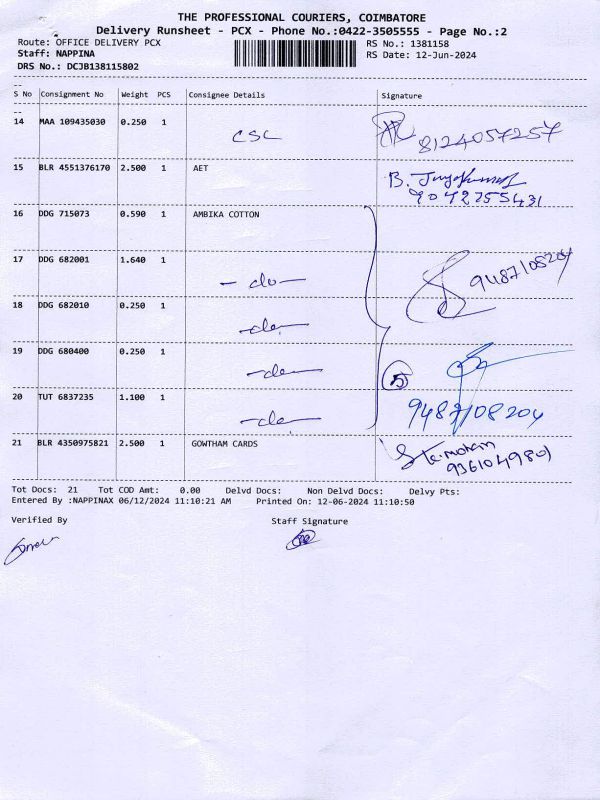 THE PROFESSIONAL COURIERS, COIMBATORE
Delivery Runsheet - PCX - Phone No.:0422-3505555 - Page No.:2
Route: OFFICE DELIVERY PCX RS No.: 1381158
Staff: NAPPINA RS Date: 12-Jun-2024
DRS No.: DCJB138115802
S No Consignment No Weight PCS Consignee Details Signature
14 MAA 109435030 0.250 1 CSC 8124057257
15 BLR 4551376170 2.500 1 AET B. Jayakumar
9042755431
16 DDG 715073 0.590 1 AMBIKA COTTON
17 DDG 682001 1.640 1 - do - 9487108204
18 DDG 682010 0.250 1 - do -
19 DDG 680400 0.250 1 - do - 5
20 TUT 6837235 1.100 1 - do - 9487108204
21 BLR 4350975821 2.500 1 GOWTHAM CARDS
9361049801
Tot Docs: 21 Tot COD Amt: 0.00 Delvd Docs: Non Delvd Docs: Delvy Pts:
Entered By :NAPPINAX 06/12/2024 11:10:21 AM Printed On: 12-06-2024 11:10:50
Verified By Staff Signature